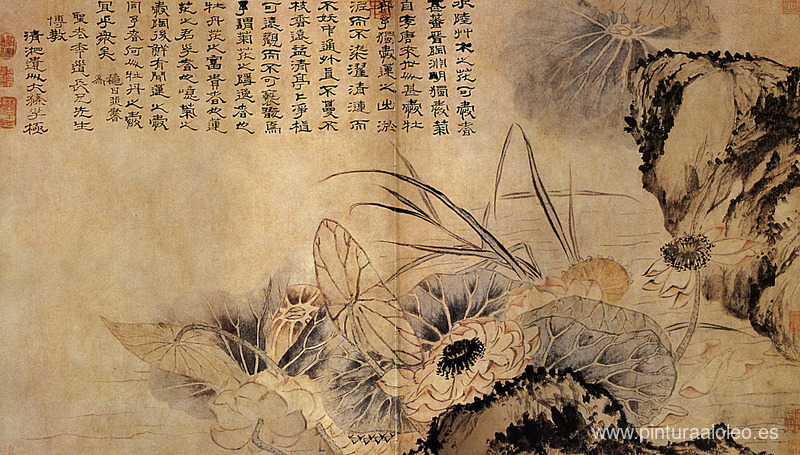 水陸艸木之花可愛者
甚蕃晉陶淵明獨愛菊
自李唐来世人甚愛牡
丹予獨愛蓮之出淤
泥而不染濯清漣而
不妖中通外直不蔓不
枝香遠益清亭亭净植
可遠觀而不可褻翫焉
予謂菊花之隱逸者也
牡丹花之富貴者也蓮
花之君子者也噫菊之
愛陶後鮮有聞蓮之愛
同予者何人牡丹之愛
宜乎衆矣
為
聖老年道長兄先生
博教
清湘遺人大滌子極
www.pinturaaloleo.es